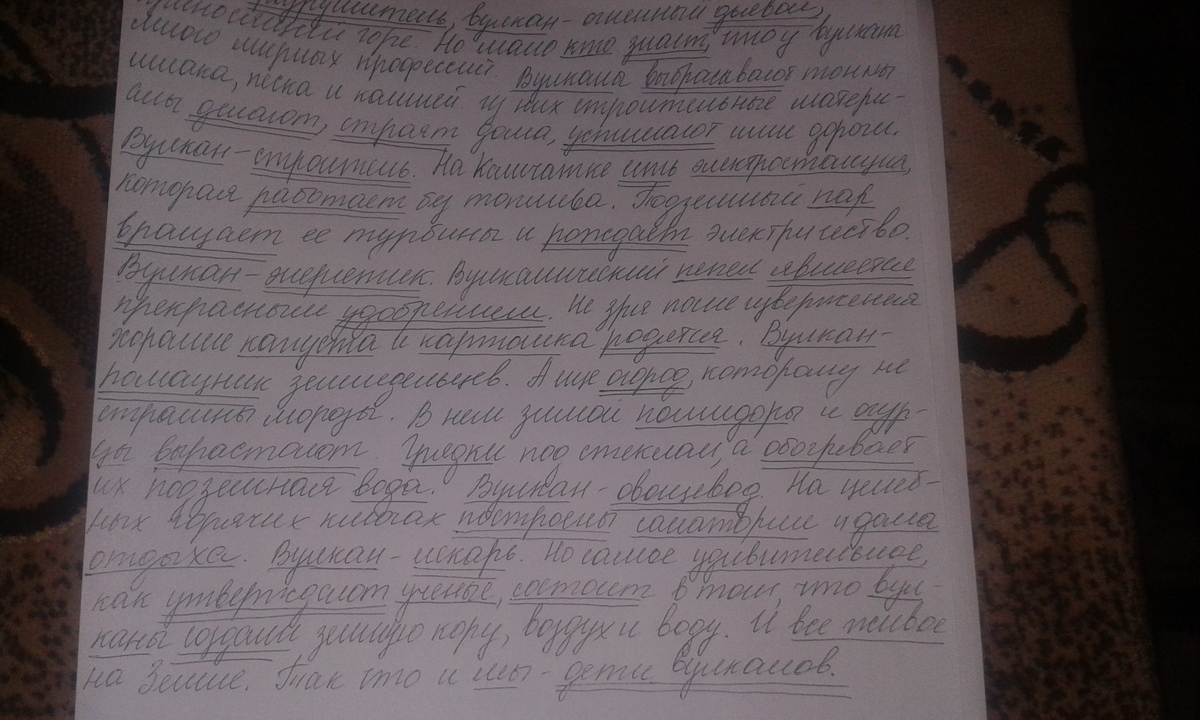 разрушитель, вулкан - огненный дьявол,
приносящий горе. Но мало кто знает, что у вулкана
много мирных профессий. Вулкана выбрасывают тонны
шлака, песка и камней из них строительные матери-
алы делают, страят дома, устилают ими дороги.
Вулкан - строитель. На Камчатке есть электростанция,
которая работает без топлива. Подземный пар
вращает ее турбины и рождает электричество.
Вулкан - энергетик. Вулканический пепел является
прекрасным удобрением. Не зря после извержения
хорошие капуста и картошка родятся. Вулкан-
помащник земледельцев. А еще огород, которому не
страшны морозы. В нем зимой помидоры и огур-
цы вырастают. Грядки под стеклом, а обогревает
их подземная вода. Вулкан - овощевод. На целеб-
ных горячих ключах построены санатории и дома
отдыха. Вулкан - лекарь. Но самое удивительное,
как утверждают ученые, состоит в том, что вул-
каны создали земную кору, воздух и воду. И все живое
на Земле. Так что и мы - дети вулканов.